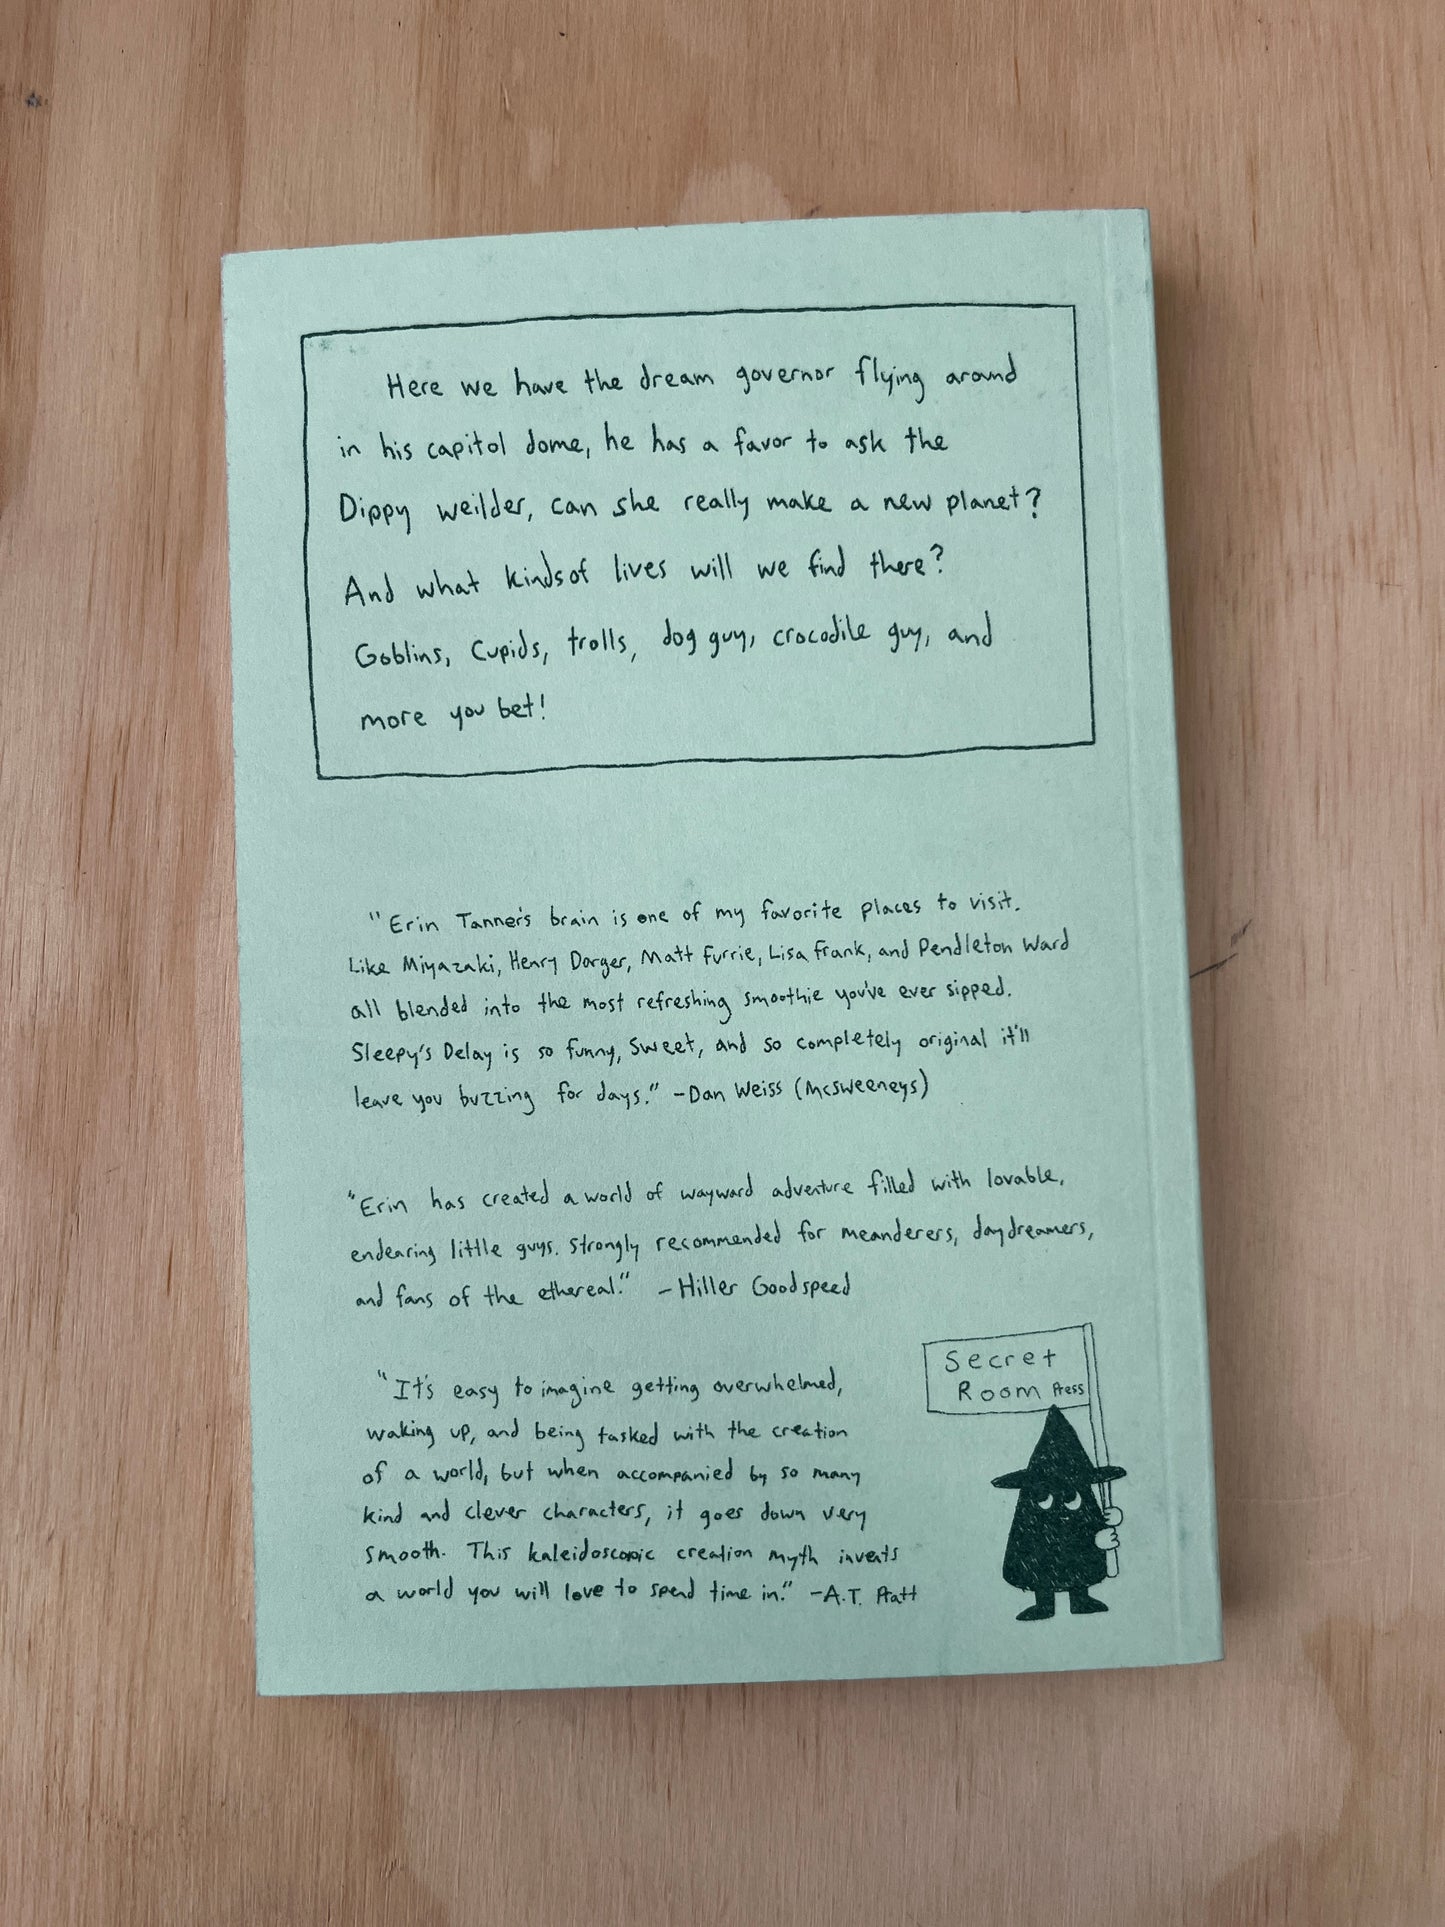 Here we have the dream governor flying around
in his capitol dome, he has a favor to ask the
Dippy weilder, can she really make a new planet?
And what kinds of lives will we find there?
Goblins, Cupids, trolls, dog guy, crocodile guy, and
more you bet!
"Erin Tanner's brain is one of my favorite places to visit.
Like Miyazaki, Henry Darger, Matt Furrie, Lisa Frank, and Pendleton Ward
all blended into the most refreshing smoothie you've ever sipped.
Sleepy's Delay is so funny, Sweet, and so completely original it'll
leave you buzzing for days." -Dan Weiss (McSweeneys)
"Erin has created a world of wayward adventure filled with lovable,
endearing little guys. Strongly recommended for meanderers, daydreamers,
and fans of the ethereal." - Hiller Goodspeed
"It's easy to imagine getting overwhelmed,
waking up, and being tasked with the creation
of a world, but when accompanied by so many
kind and clever characters, it goes down very
smooth. This kaleidoscopic creation myth invents
a world you will love to spend time in." -A.T. Pratt
Secret
Room Press